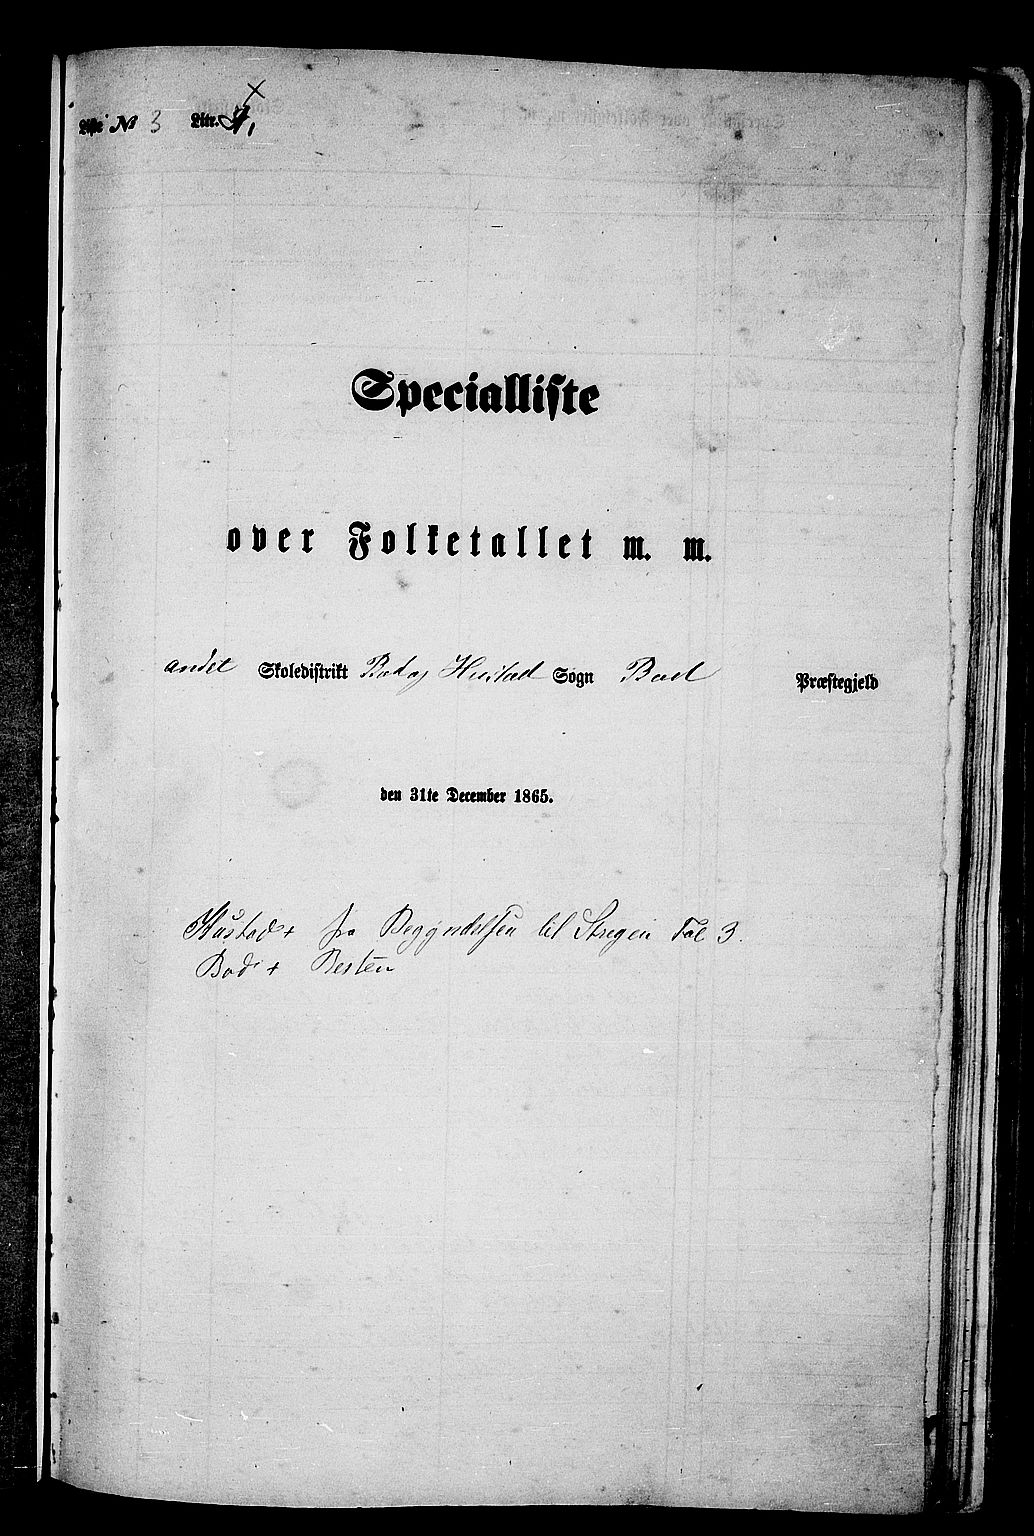 Liste № 3 Litr. A,
Specialliste
over Folketallet m. m.
andet Skoledistrikt Bod og Hustad Sogn Bod Præstegjeld
den 31te December 1865.
Hustad + fra Begyndelsen til Stregen Fol 3.
Bod + Resten